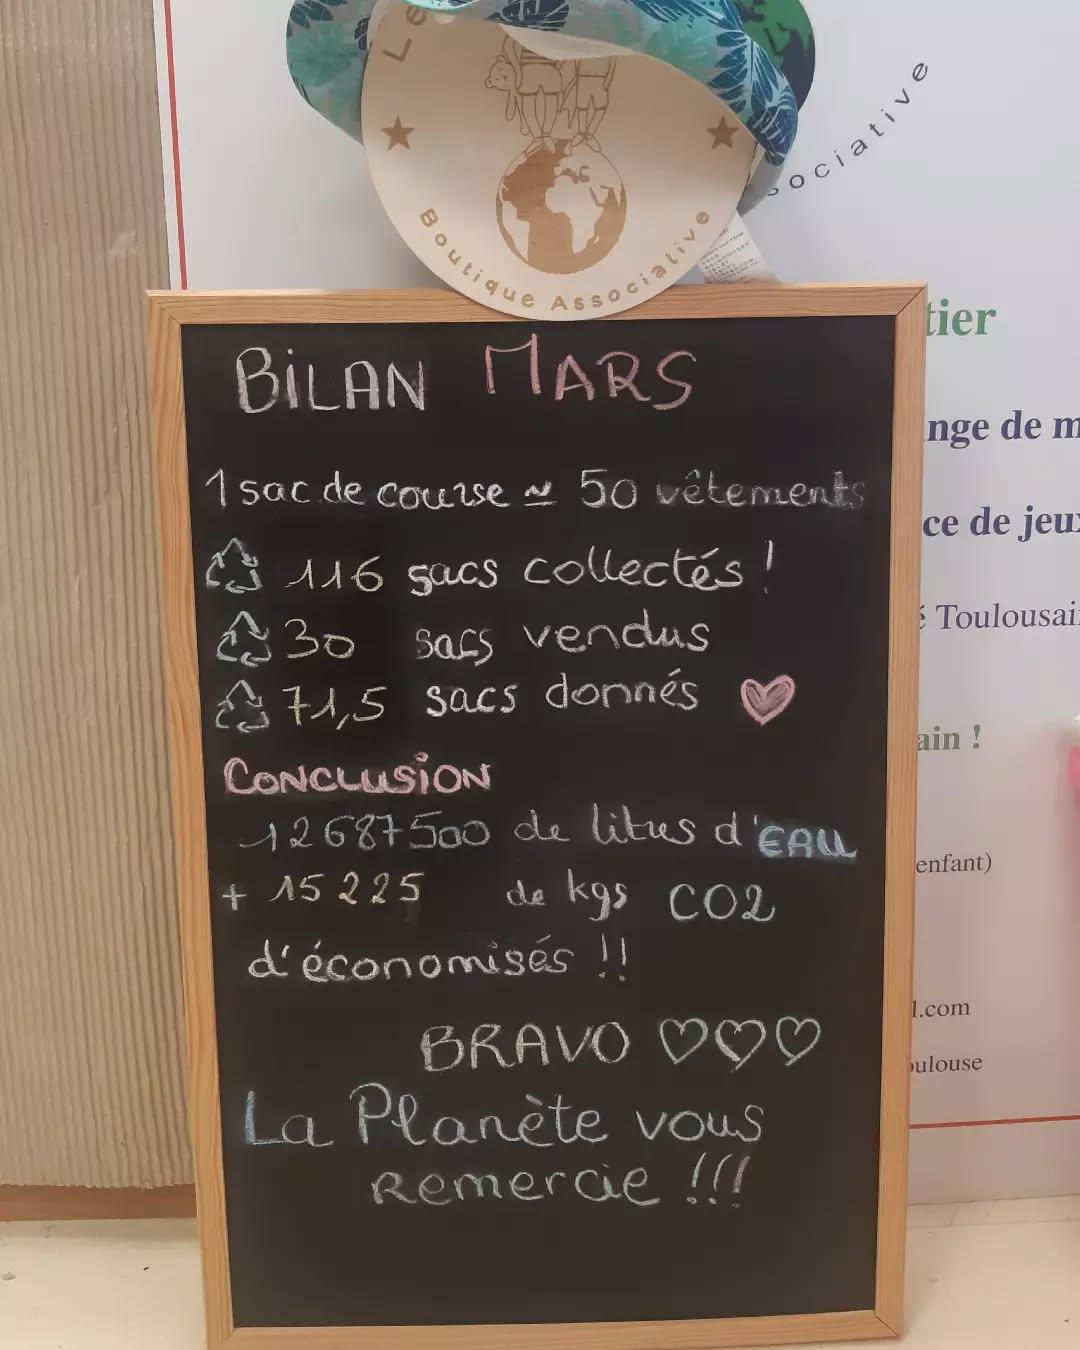 Le
Boutique Associative
ociative
BiLAN MARS
1 sac de course ≃ 50 vêtements
116 sacs collectés !
30 sacs vendus
71,5 sacs donnés
CONCLUSiON
12687500 de litres d'EAU
+ 15 225 de kgs CO2
d'économisés !!
BRAVO ♡♡♡
La Planète vous
remercie !!!
tier
nge de m
ce de jeux
é Toulousai
ain !
enfant)
l.com
oulouse